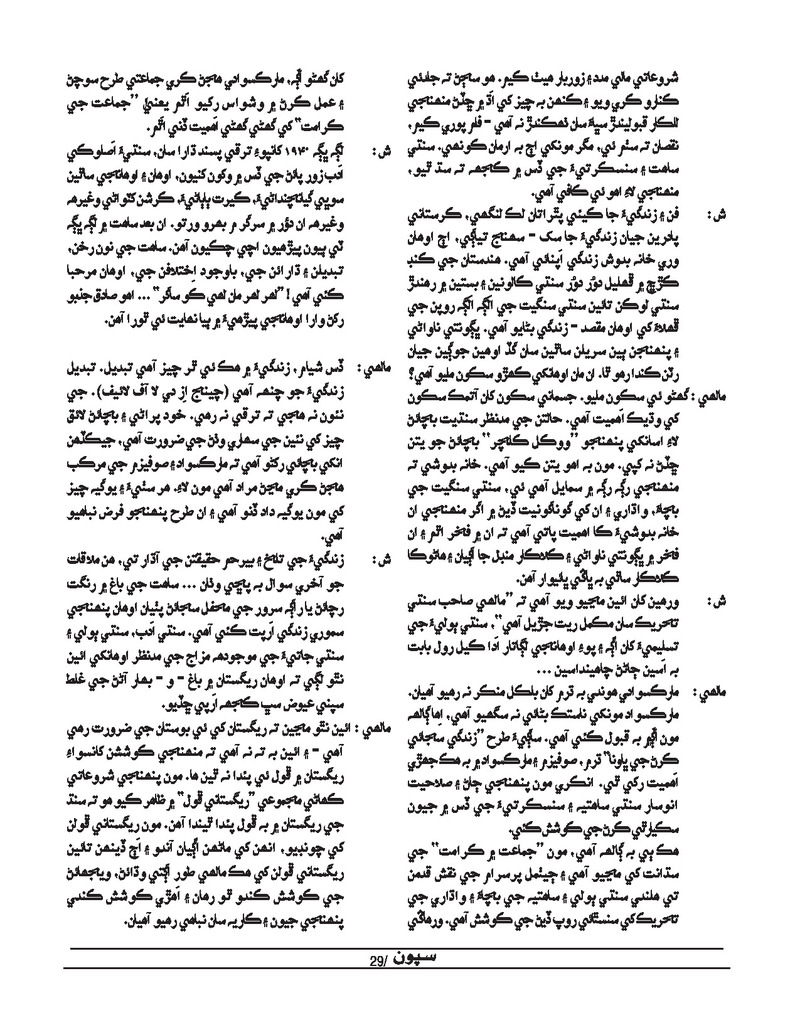 شروعاتي مالي مدد ۽ زوربار هيٺ ڪيم. هو سڄڻ ته جلدئي
ڪنارو ڪري ويو ۽ ڪنهن به چيز کي اڌ ۾ ڇڏڻ منهنجي
للڪار قبوليندڙ سڀاءَ سان ٺهڪندڙ نه آهي - فلم پوري ڪيم،
نقصان ته سٺم ئي، مگر مونکي اڄ به ارمان ڪونهي. سنڌي
ساهت ۽ سنسڪرتيءَ جي ڏس ۾ ڪجهه ته سڌ ٿيو،
منهنجي لاءِ اهو ئي ڪافي آهي.
ش : فن ۽ زندگيءَ جا ڪيئي پٿر اتان لڪ لنگهي، ڪرستاني
پادرين جيان زندگيءَ جا سک - سهنج تياڳي، اڄ اوهان
وري خانه بدوش زندگي اَپنائي آهي. هندستان جي ڪنڊ
ڪڙڇ ۾ ڦهليل دؤر دؤر سنڌي ڪالونين ۽ بستين ۾ رهندڙ
سنڌي لوڪن تائين سنڌي سنگيت جي الڳ الڳ روپن جي
ڦهلاءَ کي اوهان مقصد - زندگي بڻايو آهي. ڀڳونتي ناواڻي
۽ پنهنجن ٻين سريلن ساٿين سان گڏ اوهين جوڳين جيان
رٽن ڪندا رهو ٿا. ان مان اوهانکي ڪهڙو سڪون مليو آهي؟
مالهي : گهڻو ئي سڪون مليو. جسماني سڪون کان آتمڪ سڪون
کي وڌيڪ اَهميت آهي. حالتن جي مدنظر سنڌيت بچائڻ
لاءِ اسانکي پنهنجو ”ووڪل ڪلچر“ بچائڻ جو يتن
ڇڏڻ نه کپي. مون به اهو يتن ڪيو آهي. خانه بدوشي ته
منهنجي رڳ رڳ ۾ سمايل آهي ئي، سنڌي سنگيت جي
بچاءَ، واڌاري ۽ ان کي گوناگونيت ڏيڻ ۾ اگر منهنجي ان
خانه بدوشيءَ ڪا اهميت پاتي آهي ته ان ۾ فخر اٿم ۽ ان
فخر ۾ ڀڳونتي ناواڻي ۽ ڪلاڪار منڊل جا اڳيان ۽ هاڻوڪا
ڪلاڪار ساٿي به ڀاڱي ڀائيوار آهن.
ش : ورهين کان ائين مڃيو ويو آهي ته ”مالهي صاحب سنڌي
تحريڪ سان مڪمل ريت جڙيل آهي“، سنڌي ٻوليءَ جي
تسليميءَ کان اڳ ۽ پوءِ اوهانجي لڳاتار اَدا ڪيل رول بابت
به اَسين ڄاڻڻ چاهينداسين ...
مالهي : مارڪسوادي هوندي به ڌرم کان بلڪل منڪر نه رهيو آهيان.
مارڪسواد مونکي ناستڪ بڻائي نه سگهيو آهي، اِها ڳالهه
مون اڳ ۾ به قبول ڪئي آهي. ساڳيءَ طرح ”زندگي سجائي
ڪرڻ جي ڀاونا“ ڌرم، صوفيزم ۽ مارڪسواد ۾ به هڪجهڙي
اَهميت رکي ٿي. انڪري مون پنهنجي ڄاڻ ۽ صلاحيت
انوسار سنڌي ساهتيه ۽ سنسڪرتيءَ جي ڏس ۾ جيون
سڪيارٿي ڪرڻ جي ڪوشش ڪئي.
هڪ ٻي به ڳالهه آهي، مون ”جماعت ۾ ڪرامت“ جي
سڌانت کي مڃيو آهي ۽ جيٺمل پرسرام جي نقش قدمن
تي هلندي سنڌي ٻولي ۽ ساهتيه جي بچاءَ ۽ واڌاري جي
تحريڪ کي سنسٿائي روپ ڏيڻ جي ڪوشش آهي. ورهاڱي
کان گهڻو اڳ، مارڪسوادي هجڻ ڪري جماعتي طرح سوچڻ
۽ عمل ڪرڻ ۾ وشواس رکيو اَٿم يعنيٰ ”جماعت جي
ڪرامت“ کي گهڻي گهڻي اَهميت ڏني اٿم.
ش : لڳ ڀڳ ۱۹۴۰ کانپوءِ ترقي پسند ڌارا سان، سنڌيءَ اَصلوڪي
اَدب زور پائڻ جي ڏس ۾ وکون کنيون، اوهان ۽ اوهانجي ساٿين
سوڀي گيانچنداڻيءَ، ڪيرت ٻاٻاڻيءَ، ڪرشن کٽواڻي وغيرهه
وغيرهه ان دؤر ۾ سرگرم بهرو ورتو. ان بعد ساهت ۾ لڳ ڀڳ
ٽي ٻيون پيڙهيون اچي چڪيون آهن. ساهت جي نون رخن،
تبديلن ۽ ڌارائن جي، باوجود اِختلافن جي، اوهان مرحبا
ڪئي آهي! ”لهر لهر مان لهي ڪو ساگر“ ... اهو صادق جذبو
رکڻ وارا اوهانجي پيڙهيءَ ۾ ٻيا نهايت ئي ٿورا آهن.
مالهي : ڏس شيام، زندگيءَ ۾ هڪ ئي ٿر چيز آهي تبديل. تبديل
زندگيءَ جو چنهه آهي (چينج از دي لا آف لائيف). جي
نئون نه هجي ته ترقي نه رهي. خود پراڻي ۽ بچائڻ لائق
چيز کي نئين جي سهاري وٺڻ جي ضرورت آهي، جيڪڏهن
انکي بچائي رکڻو آهي ته مارڪسواد ۽ صوفيزم جي مرڪب
هجڻ ڪري مڃڻ مراد آهي مون لاءِ. هر سٺيءَ ۽ يوگيه چيز
کي مون يوگيه داد ڏنو آهي ۽ ان طرح پنهنجو فرض نباهيو
آهي.
ش : زندگيءَ جي تلخ ۽ بيرحم حقيقتن جي آڌار تي، هن ملاقات
جو آخري سوال به پاڇي وٺان ... ساهت جي باغ ۾ رنگت
رچائڻ يار اڳ سرور جي محفل سجائڻ پٺيان اوهان پنهنجي
سموري زندگي اَرپت ڪئي آهي. سنڌي اَدب، سنڌي ٻولي ۽
سنڌي جاتيءَ جي موجودهه مزاج جي مدنظر اوهانکي ائين
نٿو لڳي ته اوهان ريگستان ۾ باغ - و - بهار آڻڻ جي غلط
سپني عيوض سڀ ڪجهه اَرپي ڇڏيو.
مالهي : ائين نٿو مڃين ته ريگستان کي ئي بوستان جي ضرورت رهي
آهي - ۽ ائين به ته نه آهي ته منهنجي ڪوششن کانسواءِ
ريگستان ۾ ڦول ئي پيدا نه ٿين ها. مون پنهنجي شروعاتي
ڪهاڻي مجموعي ”ريگستاني ڦول“ ۾ ظاهر ڪيو هو ته سنڌ
جي ريگستان ۾ به ڦول پيدا ٿيندا آهن. مون ريگستاني ڦولن
کي چونڊيو، انهن کي ماڻهن اڳيان آندو ۽ اَڄ ڏينهن تائين
ريگستاني ڦولن کي هڪ مالهي طور اڳتي وڌائڻ، ويجهائڻ
جي ڪوشش ڪندو ٿو رهان ۽ اَهڙي ڪوشش ڪندي
پنهنجي جيون ۽ ڪاريه سان نباهي رهيو آهيان.
سپون /29